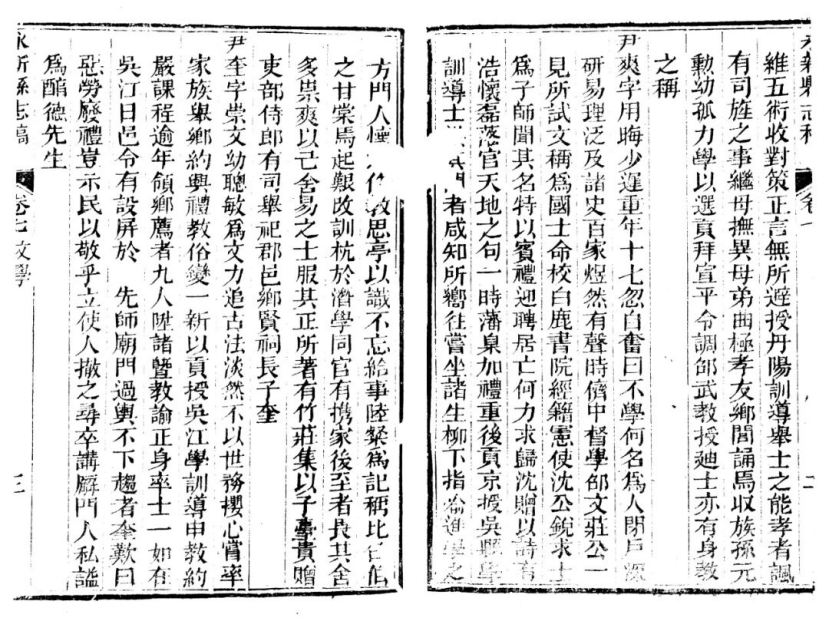 永新縣志稿 卷七 二
維五術收對策正言無所避授丹陽訓導舉士之能孝者諷
有司旌之事繼母撫異母弟曲極孝友鄉閭誦焉収族孫元
勳幼孤力學以選貢拜宣平令調邵武教授廸士亦有身教
之稱
尹爽字用晦少遲重年十七忽自奮曰不學何名為人閉戶深
研易理泛及諸史百家煜然有聲時儕中督學邵文莊公一
見所試文稱為國士命校白鹿書院經籍憲使沈公銳求士
為子師聞其名特以賓禮迎聘居亡何力求歸沈贈以詩有
浩懷磊落官天地之句一時藩臬加禮重後貢京授吳縣學
訓導士 門者咸知所嚮往嘗坐諸生柳下指 進學之
方門人懷 教思亭以識不忘給事陸粲為記稱比召伯
之甘棠焉起艱改訓杭於濟學同官有携家後至者長其舍
多祟爽以己舍易之士服其正所著有竹莊集以子 貴贈
吏部侍郎有司舉祀郡邑鄉賢祠長子奎
尹奎字崇文幼聰敏為文力追古法淡然不以世務攖心嘗率
家族舉鄉約興禮教俗變一新以貢授吳江學訓導申教約
嚴課程逾年領鄉薦者九人陞諸暨教諭正身率士一如在
吳江日邑令有設屏於 先師廟門過輿不下趨者奎歎曰
惡勞廢禮豈示民以敬乎立使人撤之尋卒講 門人私謚
為醇德先生
永新縣志稿 卷七文學 三